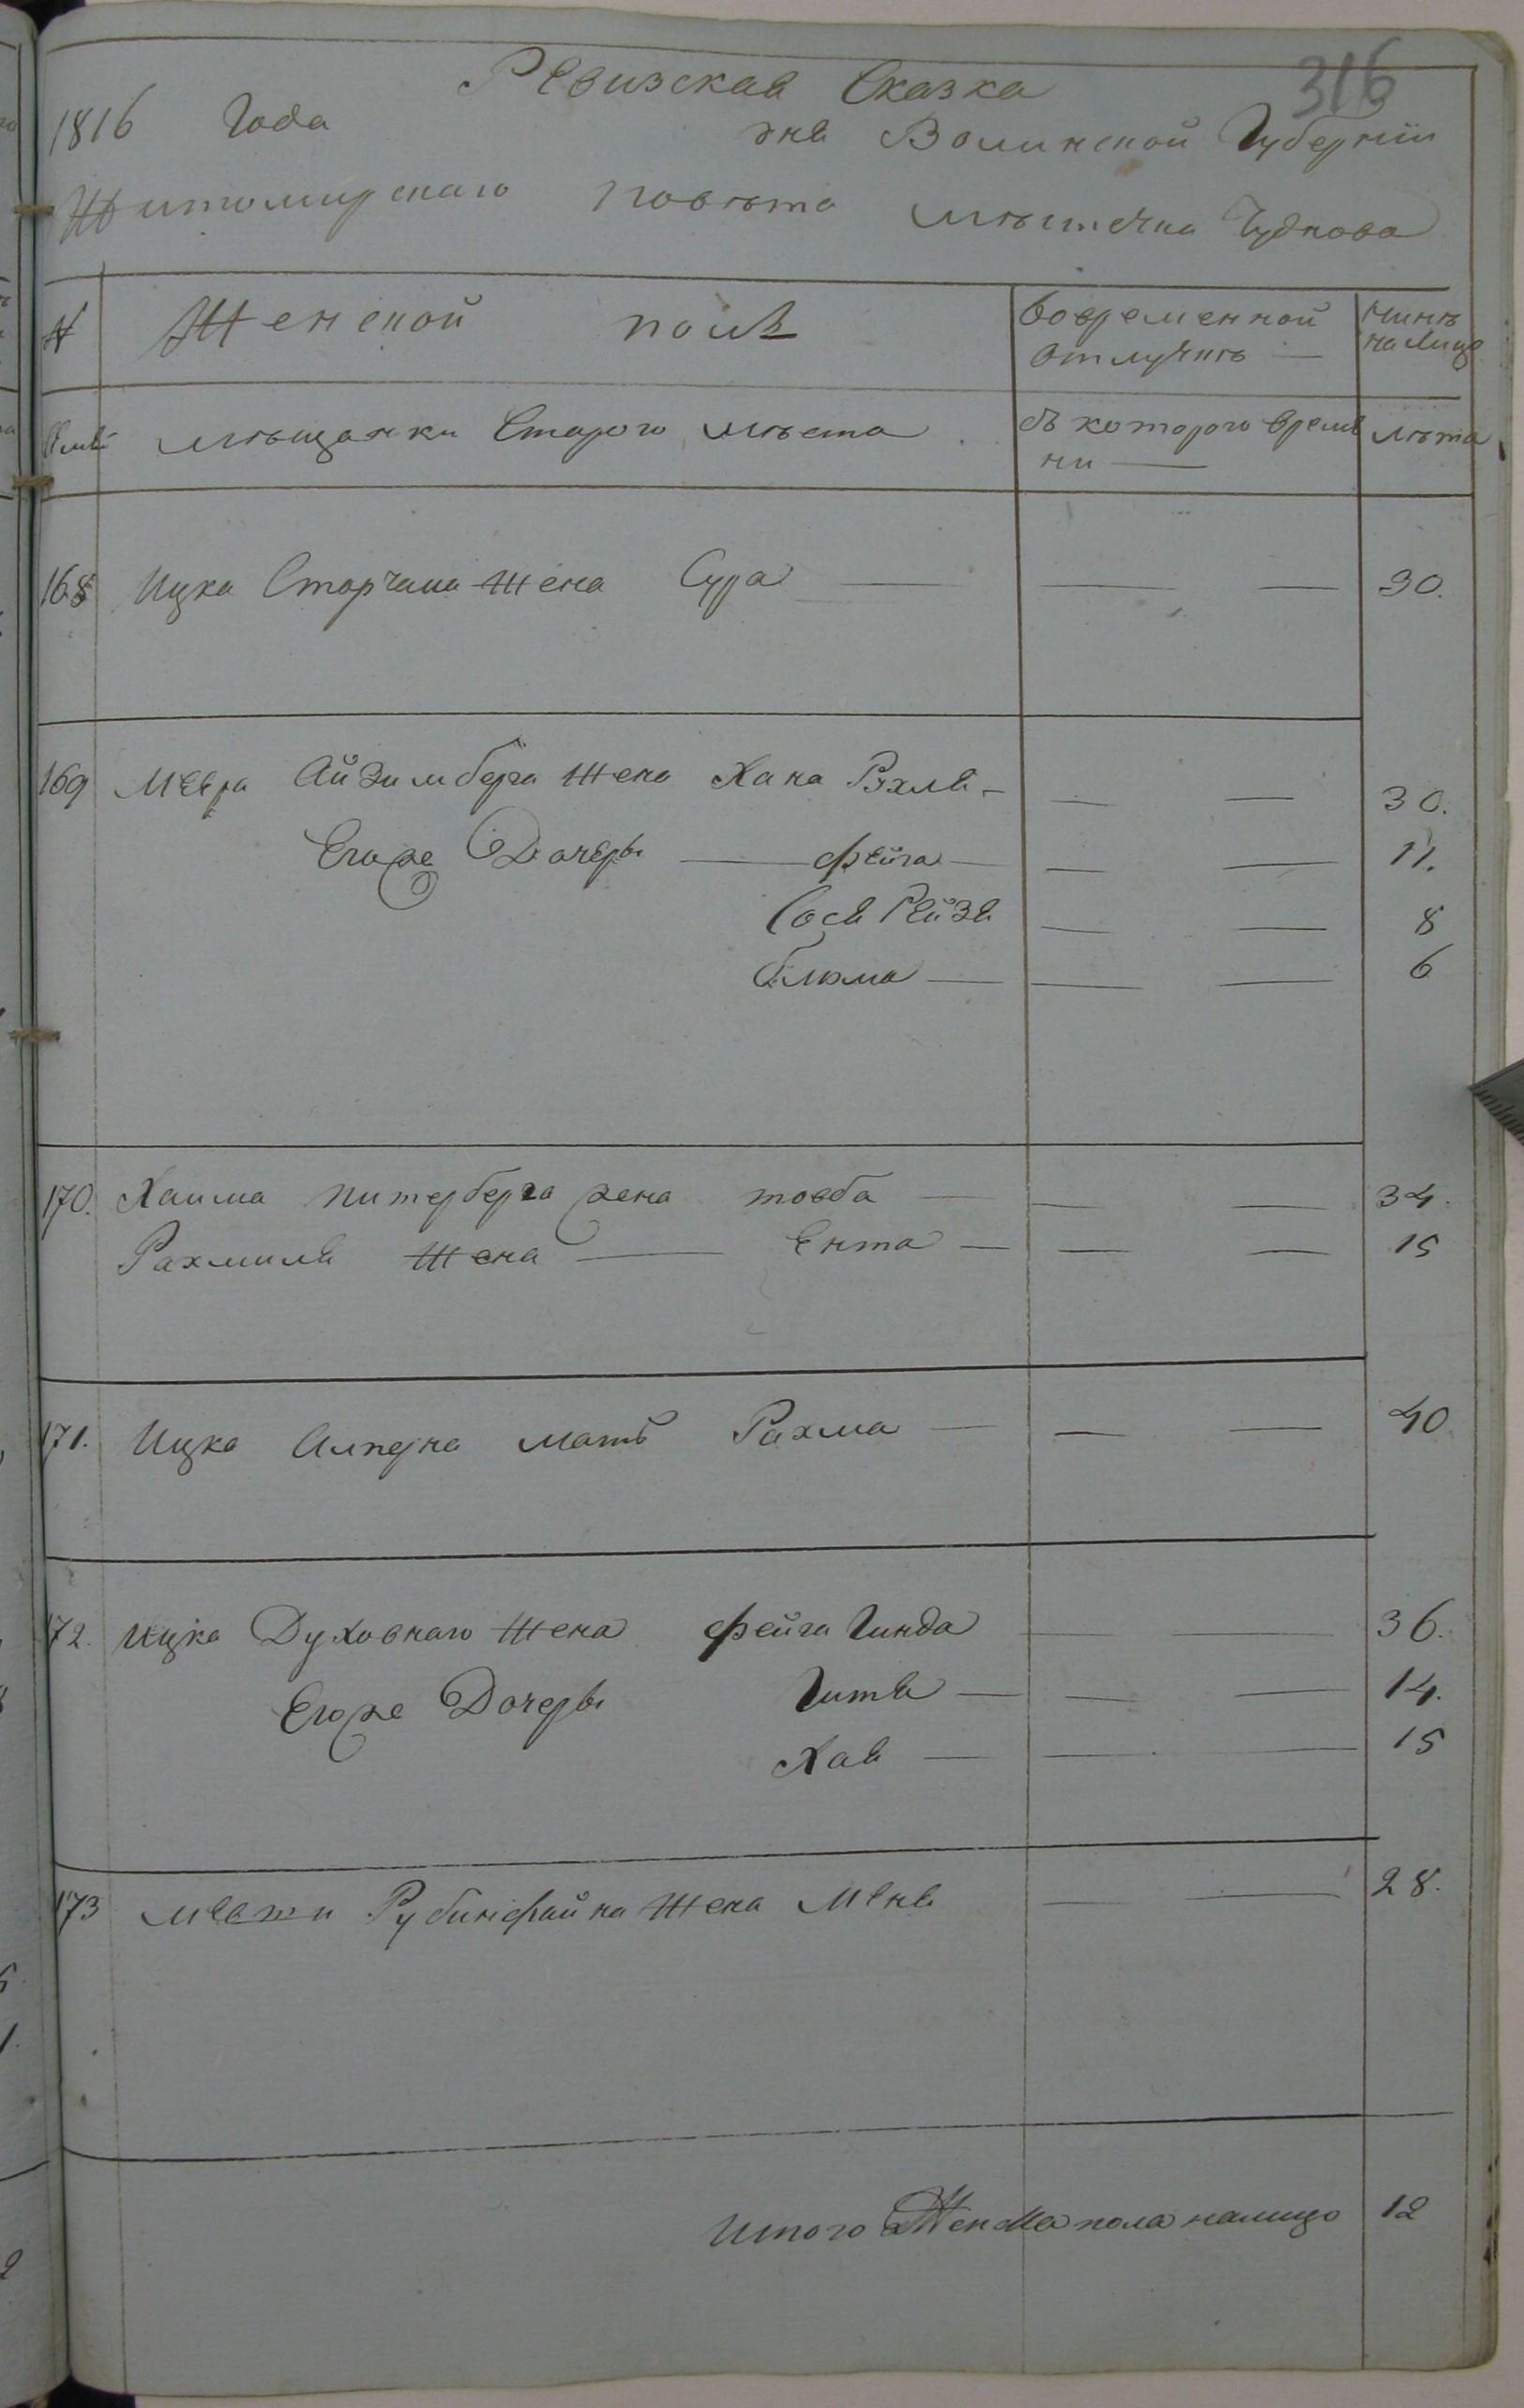 316
Ревизская Сказка
1816 Года дня Волинской Губернїи
Житомирскаго повѣта мѣстечка Чуднова
№ Женской полъ Во временной отлучкѣ — нынѣ на лицо
мѣщанки Старого мѣста съ которого време ни — лѣта
168 Ицка Сторчана жена Сура — — — 30.
169 Меера Айзимберга жена Хана Рхля — — — 30.
Егоже Дочеры — Фейга — — — 11.
Сося Рейзя — — 8
Блюма — — — 6
170. Хаима Питерберга жена товба — — — 34.
Рахмиля жена — Ента — — — 15
171. Ицка Алперна мать Рахма — — — 40
172. Ицка Духовнаго жена Фейга Гинда — — 36.
Егоже Дочеры Гитя — — — 14.
Хая — — — 15
173 Рубинфайна жена Меня — — 28.
Итого пола налицо 12